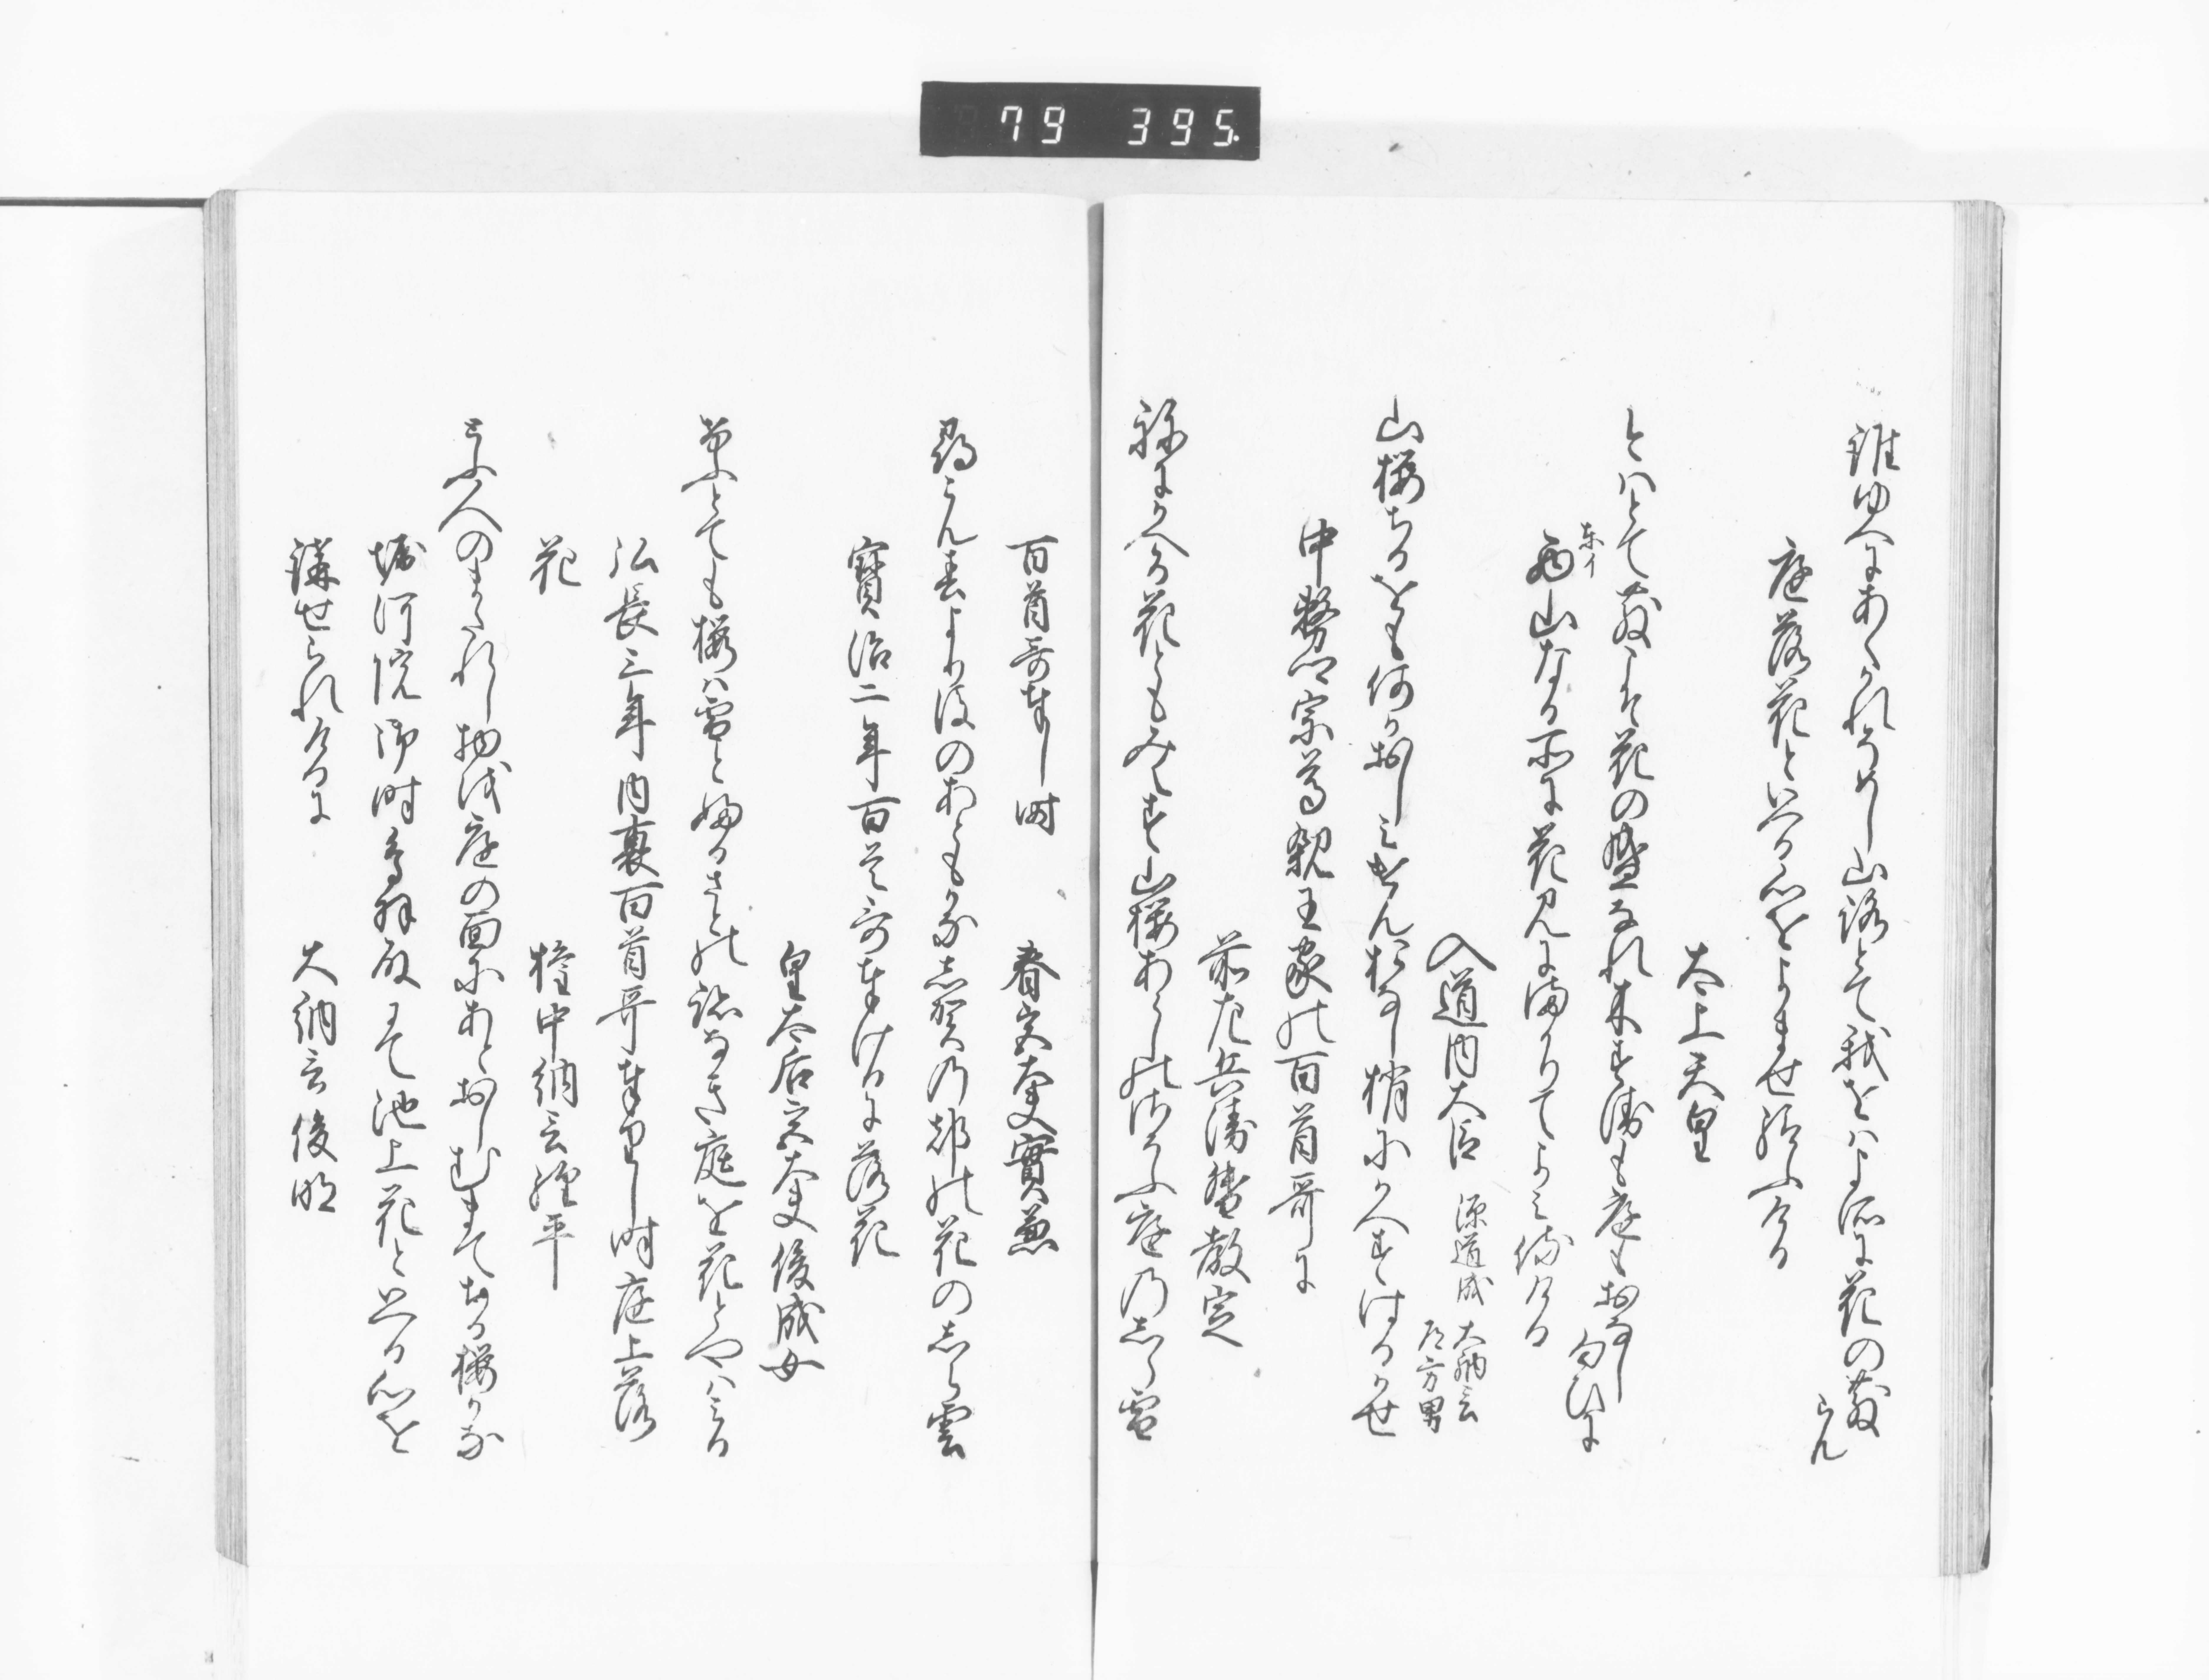 79 395
誰ゆへにあくかれそめし山路とて我をはよそに花の散
らん
庭落花といへる心をよませ給ふける
太上天皇
とはとて散こそ花の盛なれ木すゑも庭もおなし
匂ひに
東イ
西山なる所に花見にまかりてよみ侍ける
入道内大臣 源道成 大納言
定方男
山桜ちるをも何かおしみけん松なし梢にかへすはるかせ
中務卿宗尊親王家の百首哥に
前左兵衛督教定
根にかへる花ともみえす山桜あらしのさそふ庭のしら雪
百首哥奉し時
春宮大夫實兼
尋こん春より後のあともかな志賀乃都の花のしら雲
寶治二年百首哥奉けるに落花
皇太后宮大夫俊成女
第ふとても桜は雪とふるさとの跡なき庭を花とやはみる
弘長三年内裏百首哥奉りし時庭上落
花
権中納言經平
とふ人のまたれし物を庭の面にあとおしむまてちる桜かな
堀河院御時鳥羽殿にて池上花といへる心を
講せられけるに
大納言俊明